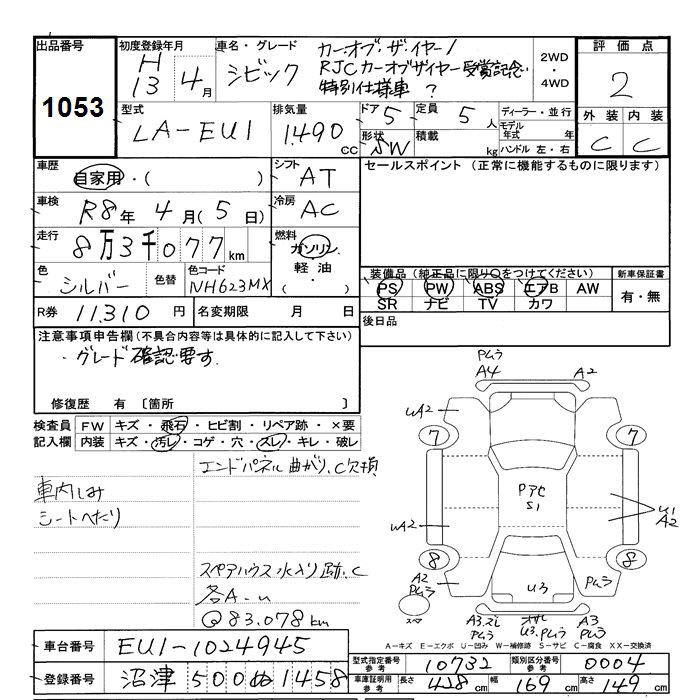 出品番号
1053
初度登録年月
H13 4月
車名・グレード
シビック
カーオブ・ザ・イヤー/
RJCカーオブザイヤー受賞記念
特別仕様車 ?
2WD
・
4WD
評価点
2
外装 内装
C C
型式
LA-EU1
排気量
1.490 cc
ドア 5
形状 SW
定員 5人
積載 kg
ディーラー・並行
モデル年式 年
ハンドル 左・右
車歴
自家用・( )
シフト
AT
セールスポイント (正常に機能するものに限ります)
車検
R8年 4月(5日)
冷房
AC
走行
8万3千077km
燃料
ガソリン・
軽油・
( )
色
シルバー
色替
色コード
NH623MX
装備品 (純正品に限り○をつけてください)
PS PW ABS エアB AW
SR ナビ TV カワ
新車保証書
有・無
R券 11,310円
名変期限 月 日
後日品
注意事項申告欄 (不具合内容等は具体的に記入して下さい)
・グレード確認要す.
修復歴 有 〔箇所 〕
検査員記入欄
FW キズ・飛石・ヒビ割・リペア跡・×要
内装 キズ・汚レ・コゲ・穴・スレ・キレ・破レ
車内しみ
シートへたり
エンドパネル曲がり、C欠損
スペアハウス水入り跡、C
各A-u
@83.078km
Pムラ
A4 A2
uA2
7 7
PアセS1
u1
A2
uA2
8 8
A2
Pムラ
u3
Pムラ
スペア
Pムラ
u3.Pムラ
A3
Pムラ
A-キズ E-エクボ U-凹み W-補修跡 S-サビ C-腐食 XX-交換済
車台番号 EU1-1024945
登録番号 沼津 500 ぬ 1458
型式指定番号 参考 10732
類別区分番号 参考 0004
車庫証明用 参考
長さ 428cm 幅 169cm 高さ 149cm